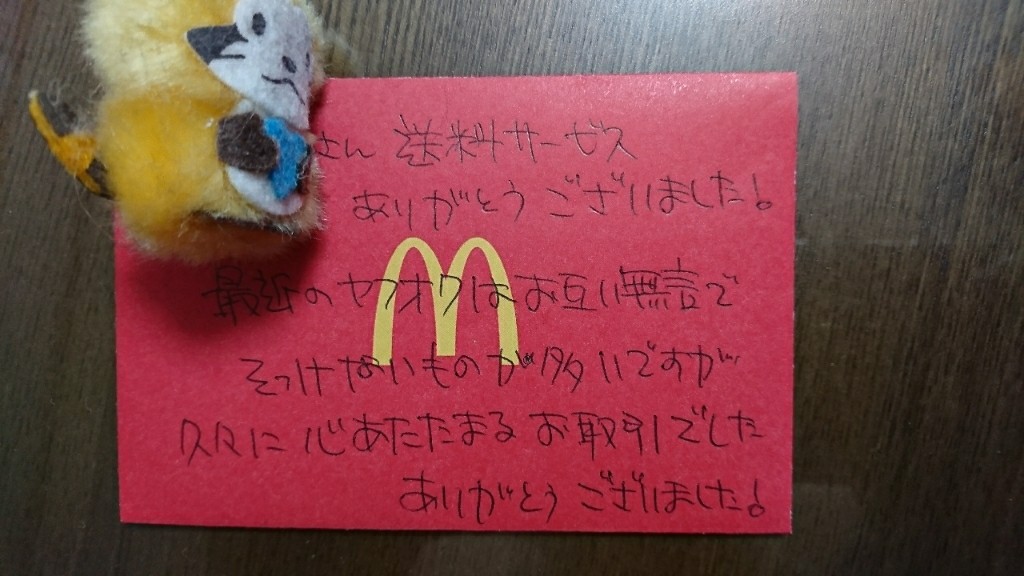 さん 送料サービス
ありがとうございました!
最近のヤフオクはお互い無言で
そっけないものが多いですが
久々に心あたたまるお取引でした
ありがとうございました!